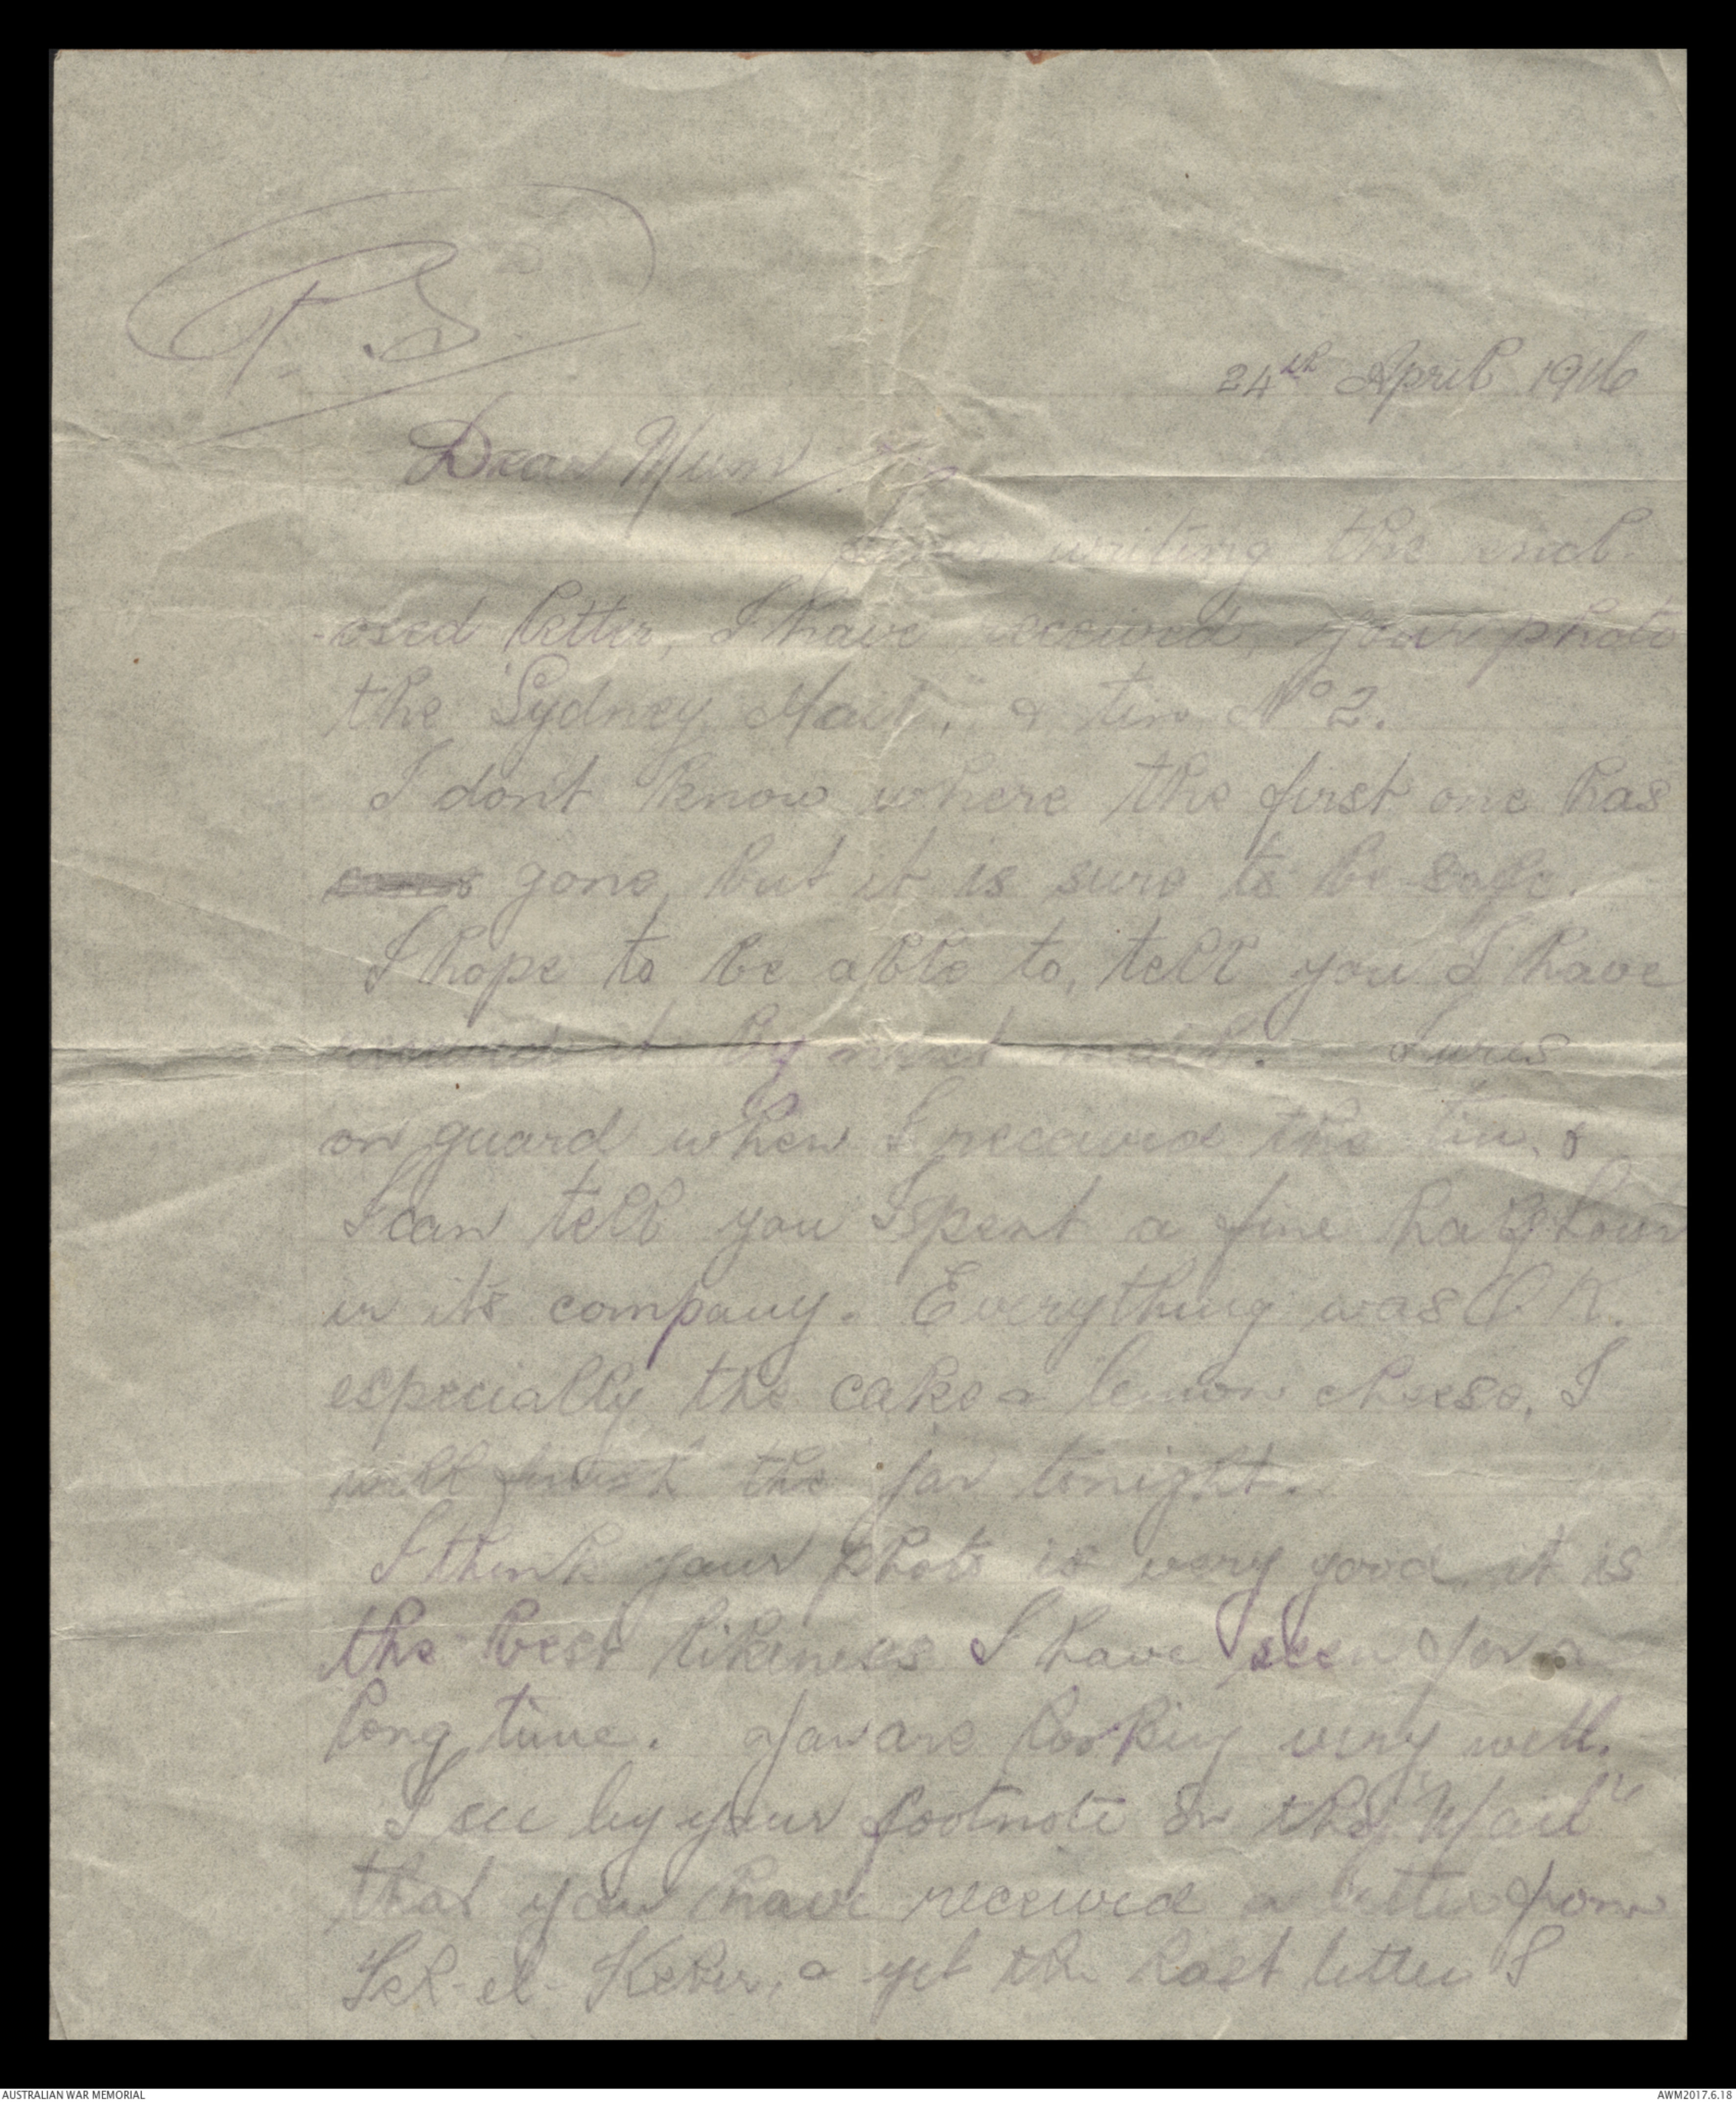 P.S
24th April 1916
Dear Mum
Since writing the encl-
-osed letter, I have received, your photo
the "Sydney Mail," & tin No 2.
I don't know where the first one has
gone, but it is sure to be safe.
I hope to be able to, tell you I have
received it by next mail. I was
on guard when I received the tin, &
I can tell you I spent a fine half hour
in its company. Everything was O.K.
especially the cake & lemon cheese, I
will finish the jar tonight.
I think your photo is very good, it is
the best likeness I have seen for a
long time. You are looking very well.
I see by your footnote on the "Mail"
that you have received a letter from
Tel-el-Kebir, & yet the last letter I
AUSTRALIAN WAR MEMORIAL
AWM2017.6.18